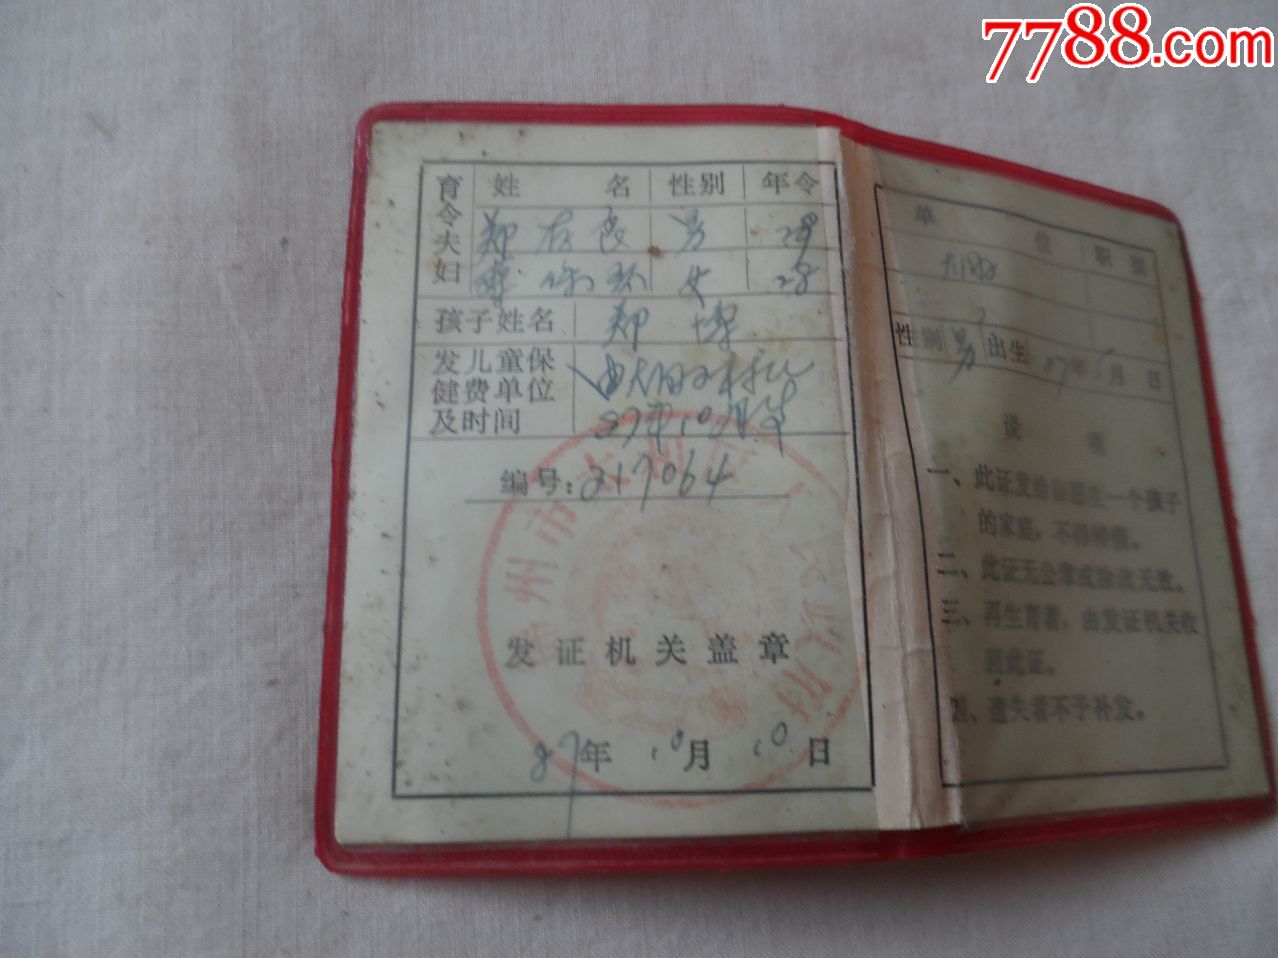 7788.com
姓 名 性别 年令
育令夫妇
郑 友良 男 28
女 28
孩子姓名 郑 博
发儿童保
健费单位
及时间
87年10月
编号：217064
州市 区人民政府
发证机关盖章
87年10月10日
单 位 职 务
性别 男 出生 87年5月 日
说 明
一、此证发给 生一个孩子
的家庭，不得转借。
二、此证无公章或涂改无效。
三、再生育者，由发证机关收
回此证。
四、遗失者不予补发。